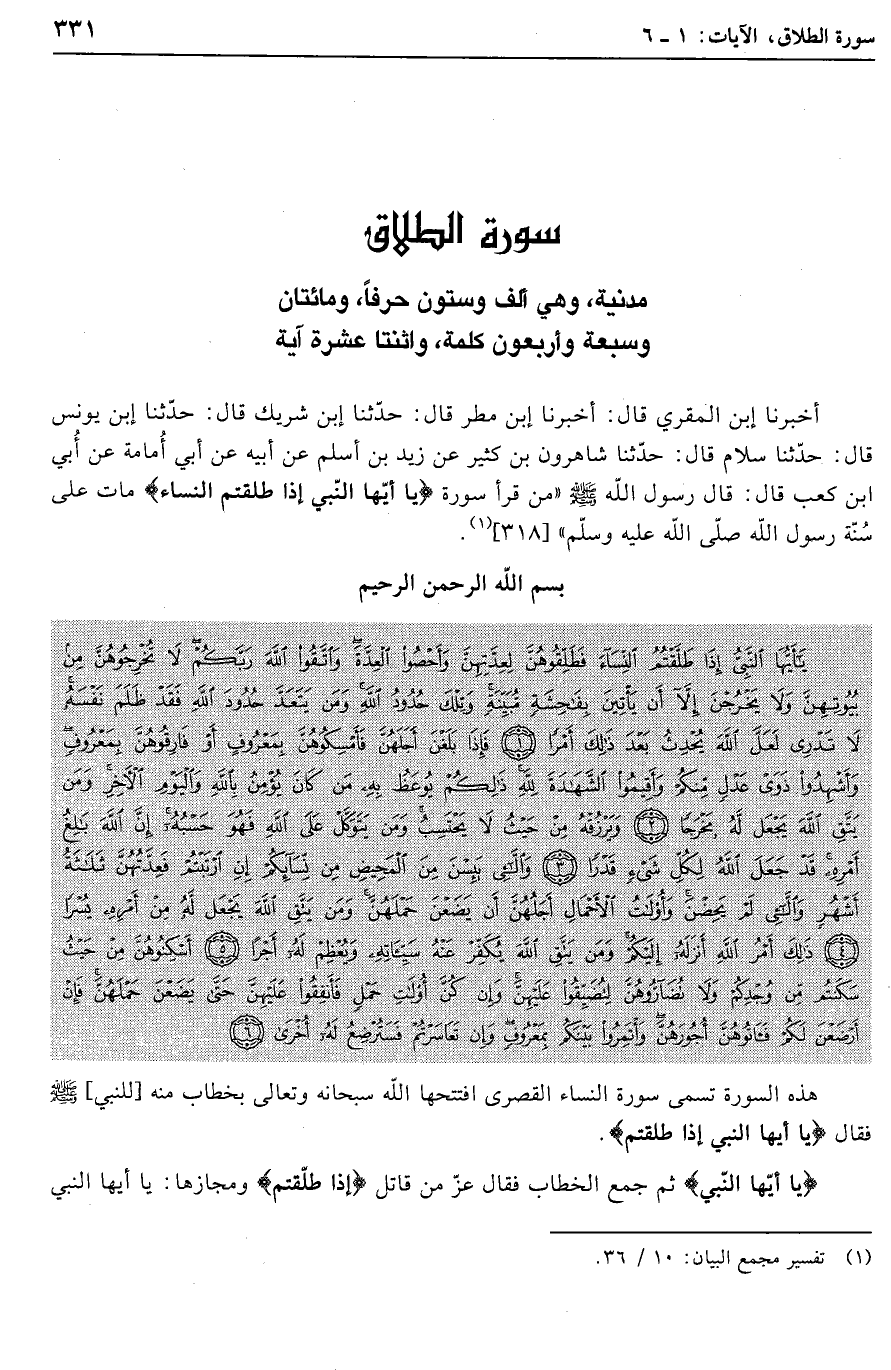 سورة الطلاق، الآيات: ١ ـ ٦ ٣٣١
سورة الطلاق
مدنية، وهي ألف وستون حرفاً، ومائتان
وسبعة وأربعون كلمة، واثنتا عشرة آية
أخبرنا إبن المقري قال: أخبرنا إبن مطر قال: حدّثنا إبن شريك قال: حدّثنا إبن يونس
قال: حدّثنا سلام قال: حدّثنا شاهرون بن كثير عن زيد بن أسلم عن أبيه عن أبي أُمامة عن أُبي
ابن كعب قال: قال رسول اللّه ﷺ «من قرأ سورة ﴿يا أيّها النّبي إذا طلقتم النساء﴾ مات على
سُنّة رسول اللّه صلّى اللّه عليه وسلّم» [٣١٨](١).
بسم اللّه الرحمن الرحيم
يَٰٓأَيُّهَا ٱلنَّبِىُّ إِذَا طَلَّقْتُمُ ٱلنِّسَآءَ فَطَلِّقُوهُنَّ لِعِدَّتِهِنَّ وَأَحْصُوا۟ ٱلْعِدَّةَ ۖ وَٱتَّقُوا۟ ٱللَّهَ رَبَّكُمْ ۖ لَا تُخْرِجُوهُنَّ مِنۢ
بُيُوتِهِنَّ وَلَا يَخْرُجْنَ إِلَّآ أَن يَأْتِينَ بِفَٰحِشَةٍ مُّبَيِّنَةٍ ۚ وَتِلْكَ حُدُودُ ٱللَّهِ ۚ وَمَن يَتَعَدَّ حُدُودَ ٱللَّهِ فَقَدْ ظَلَمَ نَفْسَهُۥ ۚ
لَا تَدْرِى لَعَلَّ ٱللَّهَ يُحْدِثُ بَعْدَ ذَٰلِكَ أَمْرًا ﴿١﴾ فَإِذَا بَلَغْنَ أَجَلَهُنَّ فَأَمْسِكُوهُنَّ بِمَعْرُوفٍ أَوْ فَارِقُوهُنَّ بِمَعْرُوفٍ
وَأَشْهِدُوا۟ ذَوَىْ عَدْلٍ مِّنكُمْ وَأَقِيمُوا۟ ٱلشَّهَٰدَةَ لِلَّهِ ۚ ذَٰلِكُمْ يُوعَظُ بِهِۦ مَن كَانَ يُؤْمِنُ بِٱللَّهِ وَٱلْيَوْمِ ٱلْءَاخِرِ ۚ وَمَن
يَتَّقِ ٱللَّهَ يَجْعَل لَّهُۥ مَخْرَجًا ﴿٢﴾ وَيَرْزُقْهُ مِنْ حَيْثُ لَا يَحْتَسِبُ ۚ وَمَن يَتَوَكَّلْ عَلَى ٱللَّهِ فَهُوَ حَسْبُهُۥٓ ۚ إِنَّ ٱللَّهَ بَٰلِغُ
أَمْرِهِۦ ۚ قَدْ جَعَلَ ٱللَّهُ لِكُلِّ شَىْءٍ قَدْرًا ﴿٣﴾ وَٱلَّٰٓـِٔى يَئِسْنَ مِنَ ٱلْمَحِيضِ مِن نِّسَآئِكُمْ إِنِ ٱرْتَبْتُمْ فَعِدَّتُهُنَّ ثَلَٰثَةُ
أَشْهُرٍ وَٱلَّٰٓـِٔى لَمْ يَحِضْنَ ۚ وَأُو۟لَٰتُ ٱلْأَحْمَالِ أَجَلُهُنَّ أَن يَضَعْنَ حَمْلَهُنَّ ۚ وَمَن يَتَّقِ ٱللَّهَ يَجْعَل لَّهُۥ مِنْ أَمْرِهِۦ يُسْرًا
﴿٤﴾ ذَٰلِكَ أَمْرُ ٱللَّهِ أَنزَلَهُۥٓ إِلَيْكُمْ ۚ وَمَن يَتَّقِ ٱللَّهَ يُكَفِّرْ عَنْهُ سَيِّـَٔاتِهِۦ وَيُعْظِمْ لَهُۥٓ أَجْرًا ﴿٥﴾ أَسْكِنُوهُنَّ مِنْ حَيْثُ
سَكَنتُم مِّن وُجْدِكُمْ وَلَا تُضَآرُّوهُنَّ لِتُضَيِّقُوا۟ عَلَيْهِنَّ ۚ وَإِن كُنَّ أُو۟لَٰتِ حَمْلٍ فَأَنفِقُوا۟ عَلَيْهِنَّ حَتَّىٰ يَضَعْنَ حَمْلَهُنَّ ۚ فَإِنْ
أَرْضَعْنَ لَكُمْ فَـَٔاتُوهُنَّ أُجُورَهُنَّ ۖ وَأْتَمِرُوا۟ بَيْنَكُم بِمَعْرُوفٍ ۖ وَإِن تَعَاسَرْتُمْ فَسَتُرْضِعُ لَهُۥٓ أُخْرَىٰ ﴿٦﴾
هذه السورة تسمى سورة النساء القصرى افتتحها اللّه سبحانه وتعالى بخطاب منه [للنبي] ﷺ
فقال ﴿يا أيها النبي إذا طلقتم﴾.
﴿يا أيّها النّبي﴾ ثم جمع الخطاب فقال عزّ من قاتل ﴿إذا طلّقتم﴾ ومجازها: يا أيها النبي
(١) تفسير مجمع البيان: ١٠ / ٣٦.